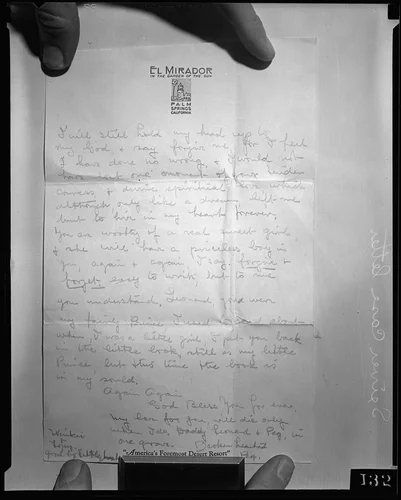 EL MIRADOR
IN THE GARDEN OF THE SUN
PALM
SPRINGS
CALIFORNIA
I will still hold my head up to
my God & say forgive me, for I feel
I have done no wrong, & I would not
have lost one moment of your tender
caress & divine spiritual love which
although only like a dream, left me
to live in my heart forever,
You are worthy of a real sweet girl
& she will have a priceless boy in
you, again & again I say forgive &
forget, easy to write but to me
you understand, were
my fairy Prince I used to read about
when I was a little girl, I put you back
in the little book, still as my little
Prince but this time the book is
in my soul.
Again Again
God Bless You for ever,
my love for you, will die only
when Daddy & Peg, in
one grave. Broken hearted
Peg.
"America's Foremost Desert Resort"
Case Letter
132